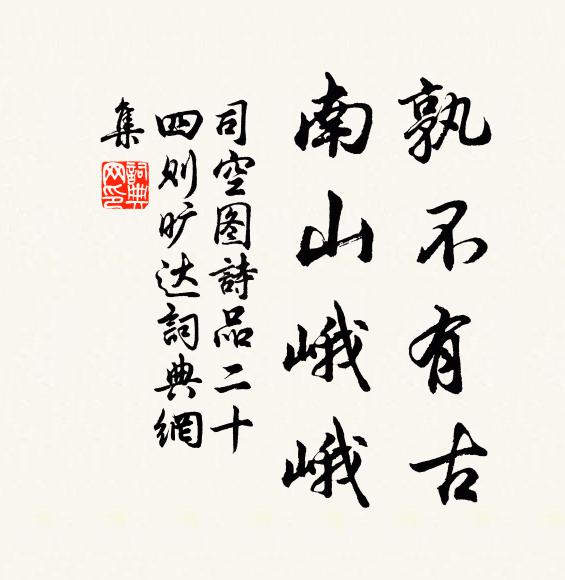 孰不有古
南山峨峨
司空图詩品二十
四则旷达詞典網
集
詞典
网印